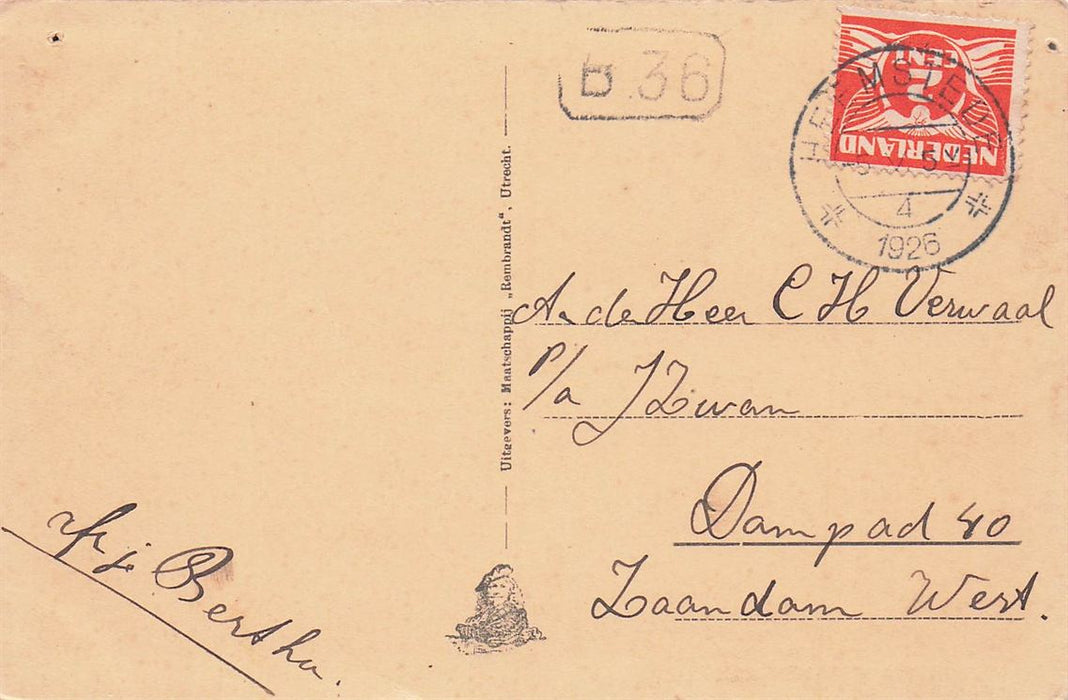 B.36
CENT
NEDERLAND
HEEMSTEDE
5 V 5
4
1926
Uitgevers: Maatschappij „Rembrandt", Utrecht.
A. de Heer C H Verwaal
p/a J Zwan
Dampad 40
Zaandam West.
Bertha.